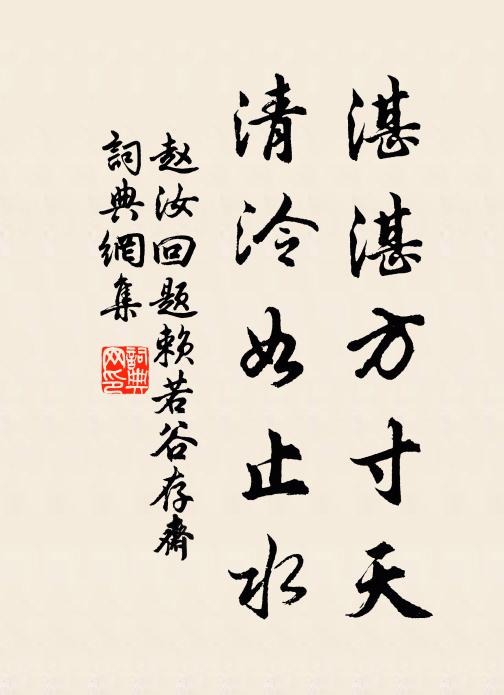 湛湛方寸天
清泠如止水
赵汝回题赖若谷存斋
詞典網集
詞典网印